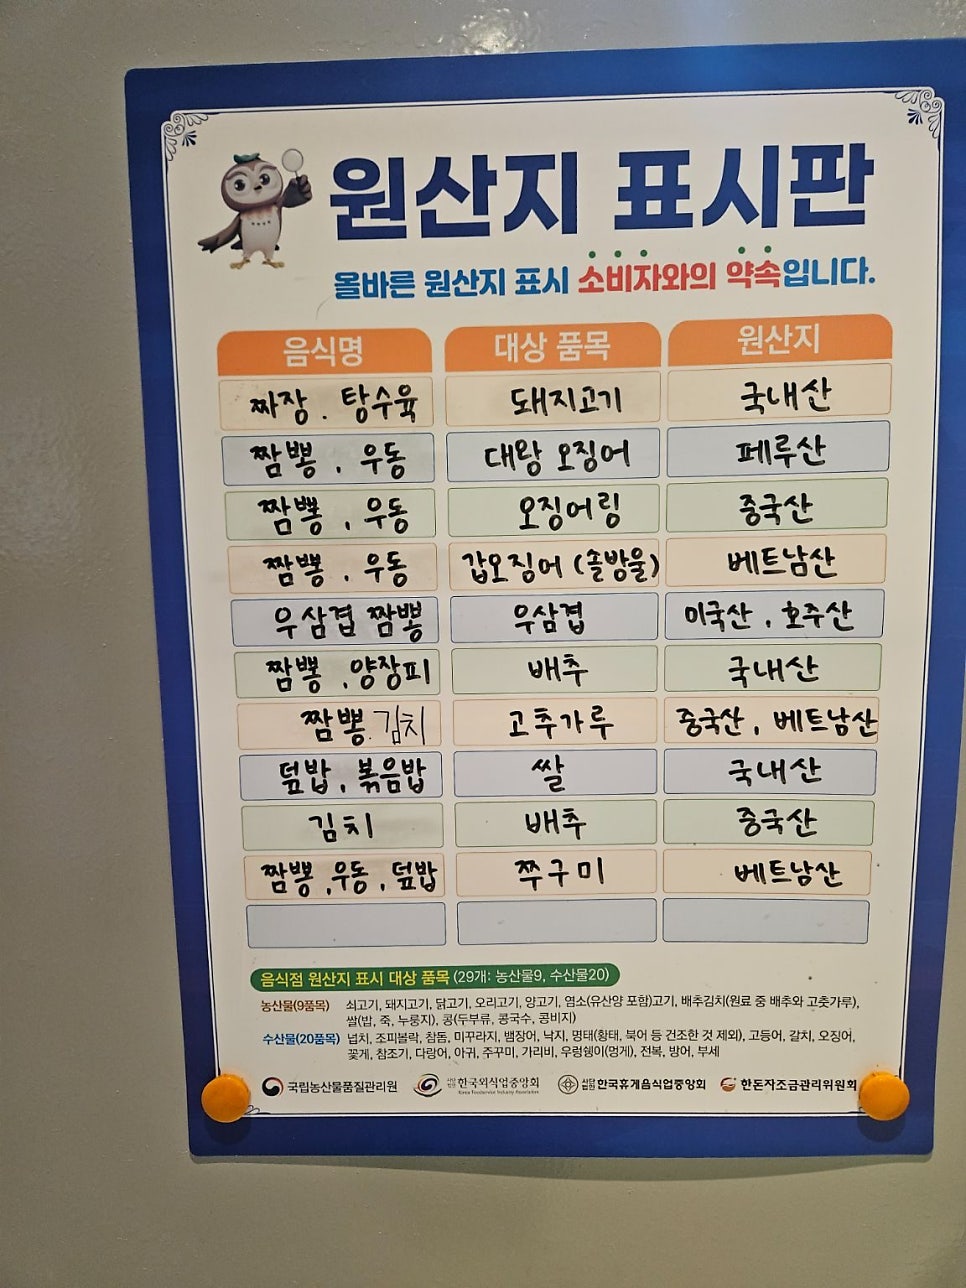 원산지 표시판
올바른 원산지 표시 소비자와의 약속입니다.
음식명 대상 품목 원산지
짜장. 탕수육 돼지고기 국내산
짬뽕, 우동 대왕 오징어 페루산
짬뽕, 우동 오징어링 중국산
짬뽕, 우동 갑오징어 (솔방울) 베트남산
우삼겹 짬뽕 우삼겹 미국산, 호주산
짬뽕,양장피 배추 국내산
짬뽕.김치 고추가루 중국산, 베트남산
덮밥, 볶음밥 쌀 국내산
김치 배추 중국산
짬뽕,우동,덮밥 쭈구미 베트남산
음식점 원산지 표시 대상 품목 (29개: 농산물9, 수산물20)
농산물(9품목) 쇠고기, 돼지고기, 닭고기, 오리고기, 양고기, 염소(유산양 포함)고기, 배추김치(원료 중 배추와 고춧가루),
쌀(밥, 죽, 누룽지), 콩(두부류, 콩국수, 콩비지)
수산물(20품목) 넙치, 조피볼락, 참돔, 미꾸라지, 뱀장어, 낙지, 명태(황태, 북어 등 건조한 것 제외), 고등어, 갈치, 오징어,
꽃게, 참조기, 다랑어, 아귀, 주꾸미, 가리비, 우렁쉥이(멍게), 전복, 방어, 부세
국립농산물품질관리원 사단법인 한국외식업중앙회 사단법인 한국휴게음식업중앙회 한돈자조금관리위원회
Korea Foodservice Industry Association